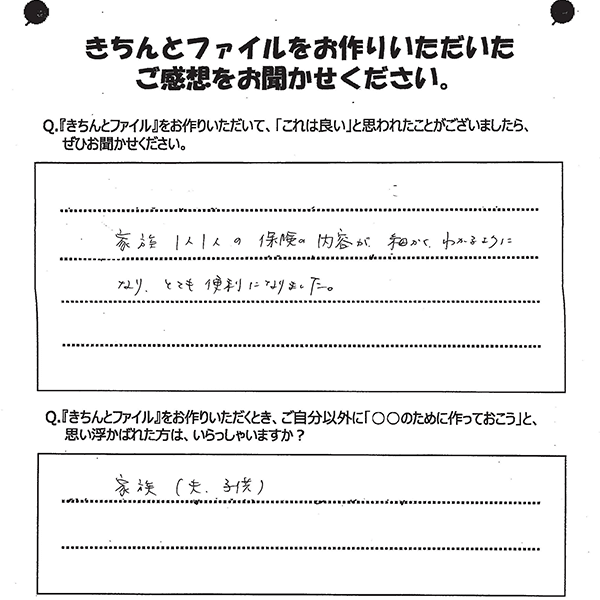 きちんとファイルをお作りいただいた
ご感想をお聞かせください。
Q.『きちんとファイル』をお作りいただいて、「これは良い」と思われたことがございましたら、
ぜひお聞かせください。
家族1人1人の保険の内容が、細かく、わかるように
なり、とても便利になりました。
Q.『きちんとファイル』をお作りいただくとき、ご自分以外に「〇〇のために作っておこう」と、
思い浮かばれた方は、いらっしゃいますか？
家族（夫、子供）